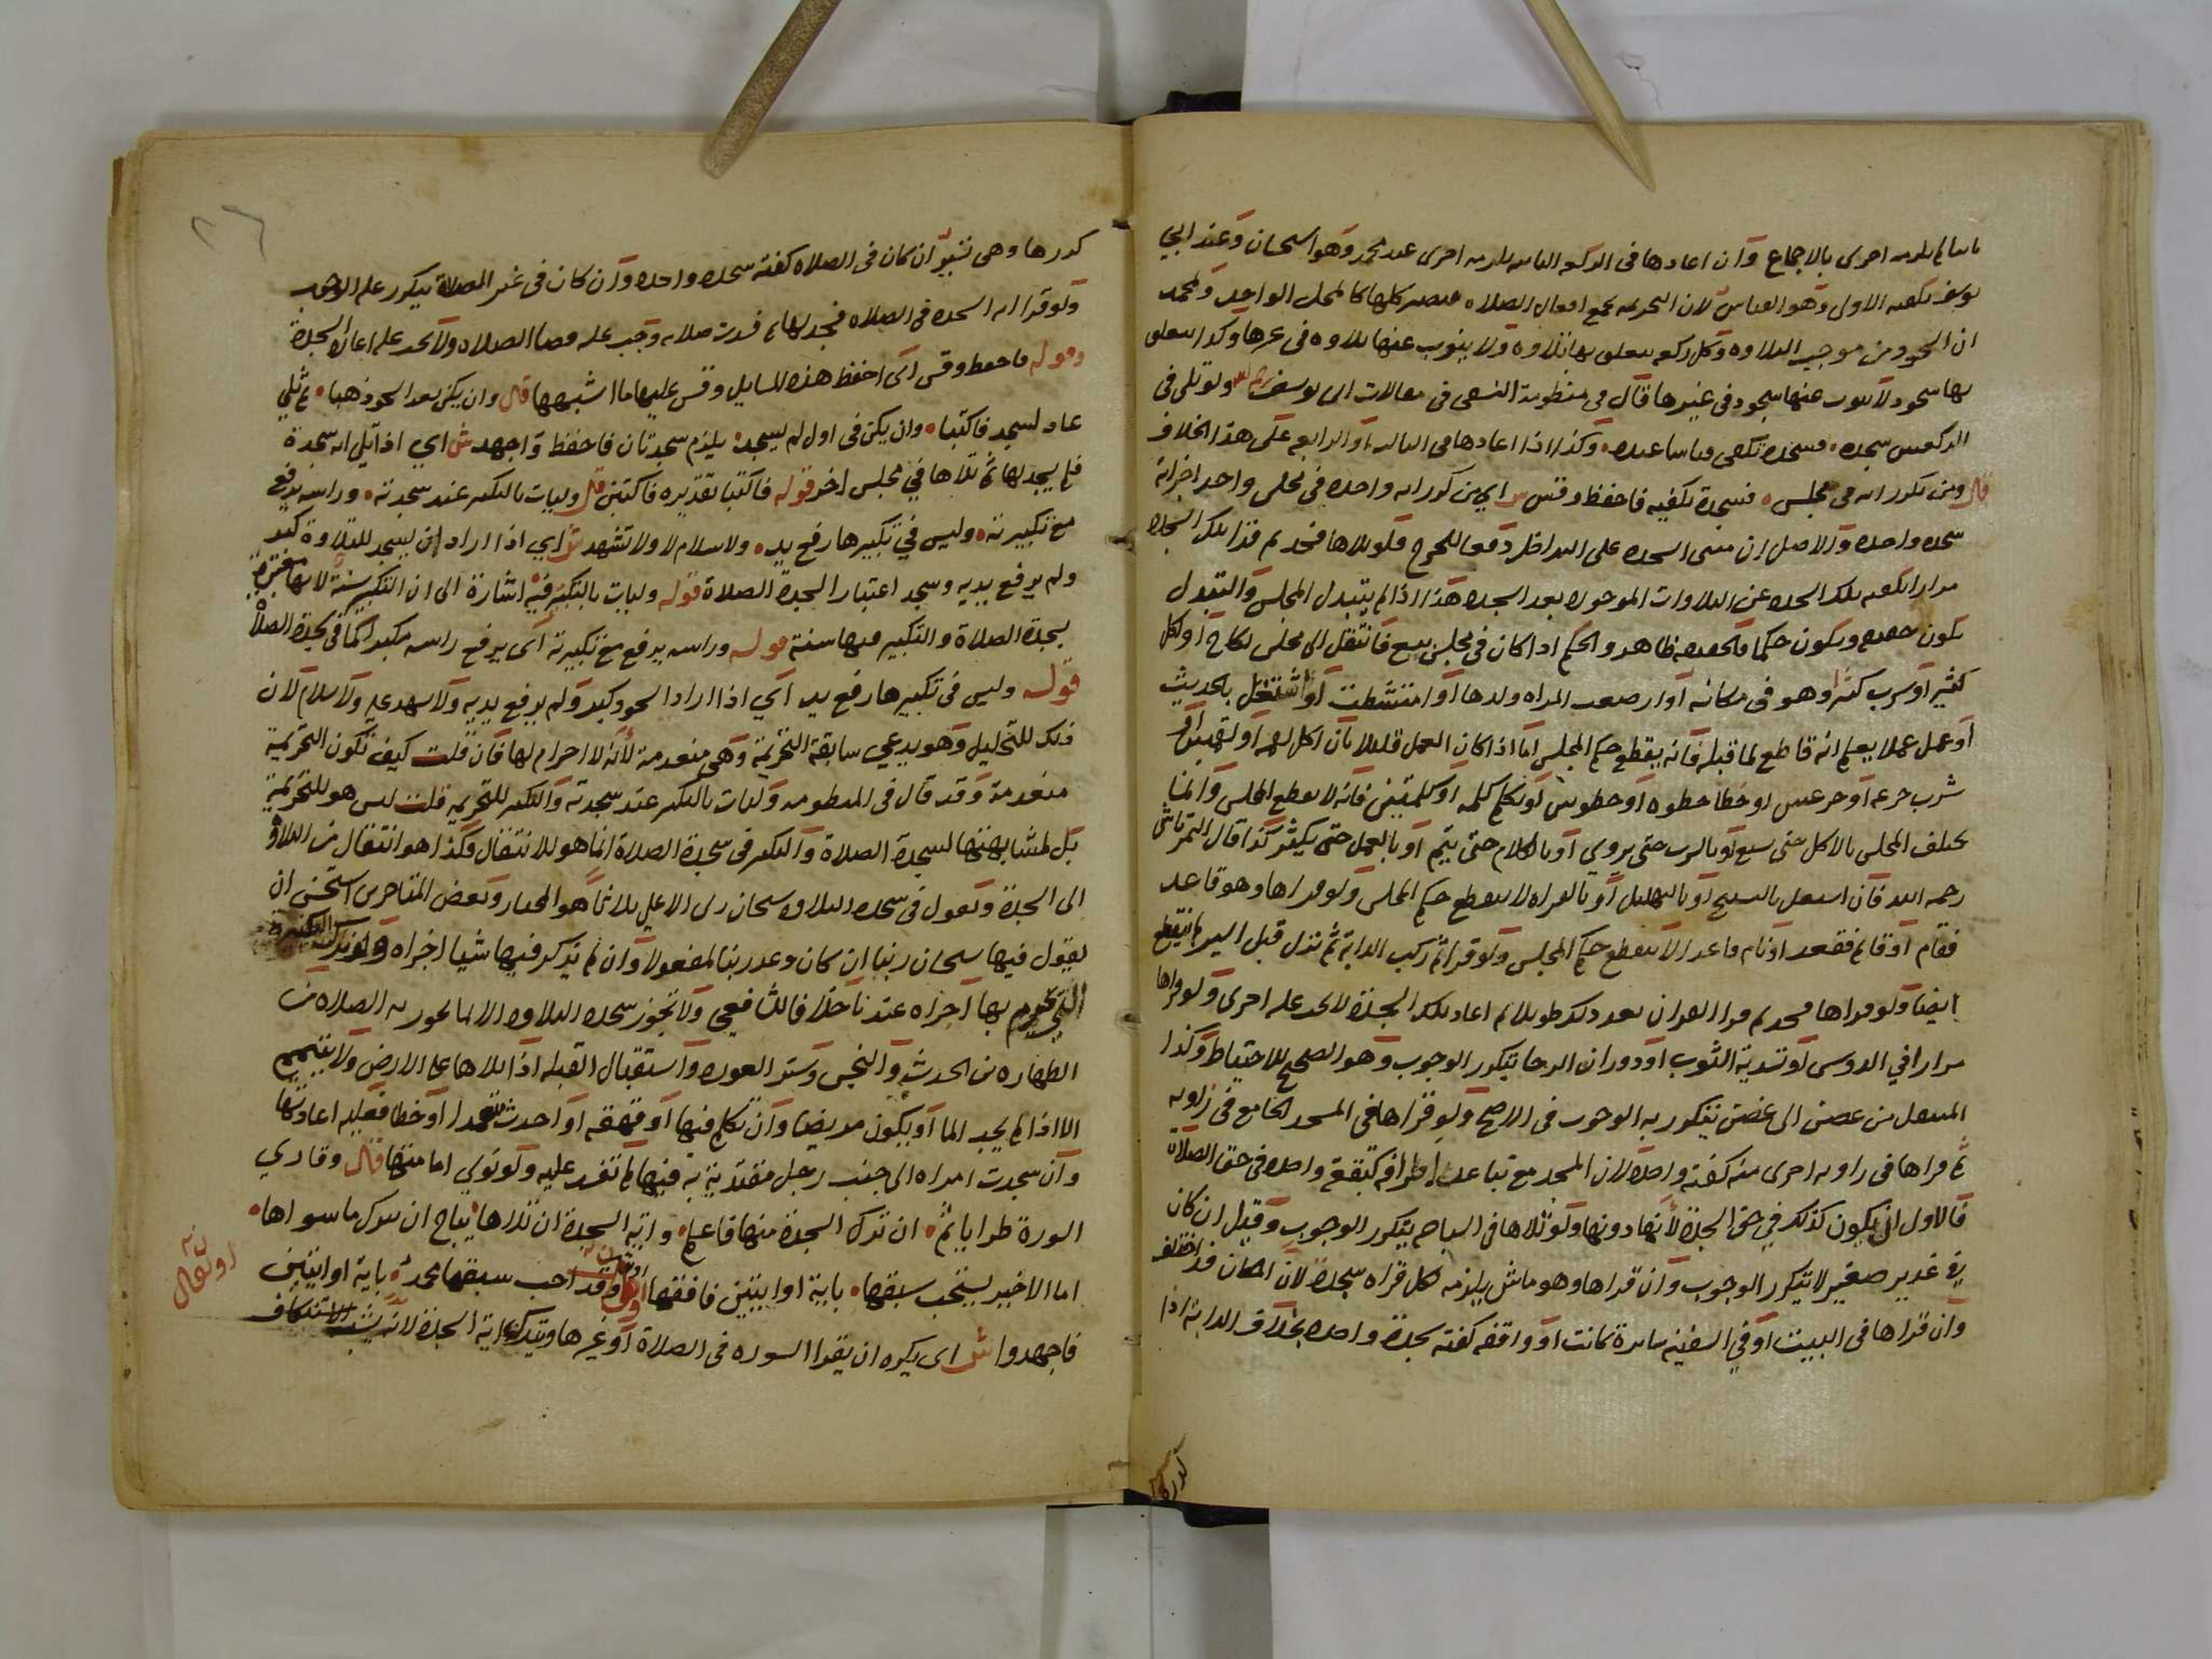 لم يلزمه اخرى بالاجماع وان اعادها فى الركعه الثانيه يلزمه اخرى عند محمد وهو استحسان وعند ابي
يوسف تكفيه الاولى وهو القياس لان التحريمه تجمع افعال الصلاه فيصير كلها كالمحل الواحد ولمحمد
ان السجود من موجب التلاوه وكل ركعه يتعلق بها تلاوه ولا ينوب عنها تلاوه فى غيرها وكذا يتعلق
بها سجود لا ينوب عنها سجود في غيرها قال في منظومة النسفى فى مقالات ابى يوسف ولو تلى فى
الركعتين سجده فسجده تكفى قياسا عنده وكذا اذا اعادها فى الثالثه او الرابعه على هذا الخلاف
قال ومن يكرر ايه فى مجلس فسجدة تكفيه فاحفظ وقس ش اي من كرر ايه واحده في مجلس واحد اجزاته
سجده واحده والاصل ان مبنى السجده على التداخل دفعا للحرج فلو تلاها فسجد ثم قرا تلك السجده
مرارا تكفيه تلك السجده عن التلاوات الموجوده بعد السجده هذا اذا لم يتبدل المجلس والتبدل
يكون حقيقه ويكون حكما فالحقيقه ظاهر والحكم اذا كان في مجلس بيع فانتقل الى مجلس نكاح او اكل
كثير او شرب كثيرا وهو فى مكانه او ارضعت المراه ولدها او امتشطت او اشتغل بالحديث
او عمل عملا يعلم انه قاطع لما قبله فانه يقطع حكم المجلس اما اذا كان العمل قليلا بان اكل لقمه او لقمتين او
شرب جرعه او جرعتين او خطا خطوه او خطوتين او تكلم كلمه او كلمتين فانه لا يقطع المجلس وانما
يختلف المجلس بالاكل حتى يشبع او بالشرب حتى يروي او بالكلام حتى يتم او بالعمل حتى يكثر كذا قال التمرتاشي
رحمه الله فان اشتغل بالتسبيح او بالتهليل او بالقراه لا يقطع حكم المجلس ولو قراها وهو قاعد
فقام او قائم فقعد او نام قاعدا لا يقطع حكم المجلس ولو قرا ثم ركب الدابة ثم نزل قبل السير لم ينقطع
ايضا ولو قراها فسجد ثم قرا القران بعد ذلك طويلا ثم اعاد تلك السجدة لا يجب عليه اخرى ولو قراها
مرارا في الدوس او تسدية الثوب او دوران الرحا يتكرر الوجوب وهو الصحيح للاحتياط وكذا
المنتقل من غصن الى غصن يتكرر به الوجوب فى الاصح ولو قراها فى المسجد الجامع فى زاويه
ثم قراها فى زاويه اخرى منه كفته واحدة لان المسجد مع تباعد اطرافه كبقعة واحده فى حق الصلاة
فالاولى ان يكون كذلك في حق السجدة لانها دونها ولو تلاها فى السباحه يتكرر الوجوب وقيل ان كان
في غدير صغير لا يتكرر الوجوب وان قراها وهو ماش يلزمه لكل قراه سجدة لان المكان قد اختلف
وان قراها فى البيت او في السفينه سايرة كانت او واقفه كفته سجدة واحده بخلاف الدابة اذا
كررها
كررها وهى تسير ان كان فى الصلاه كفته سجده واحده وان كان فى غير الصلاة يتكرر عليه الوجوب
ولو قرا ايه السجده فى الصلاه فسجد لها ثم فسدت صلاته وجب عليه قضا الصلاه ولا يجب عليه اعادة السجدة
وقوله فاحفظ وقس اى احفظ هذه المسايل وقس عليها ما اشبهها قال وان يكن بعد السجود ذهبا ثم تلي
عاد لسجد فاكتبا وان يكن فى اول لم يسجد يلزم سجدتان فاحفظ واجهد ش اي اذا تلى ايه سجدة
فلم يسجد لها ثم تلاها في مجلس اخر قوله فاكتبا تقديره فاكتبن قال وليات بالتكبير عند سجدته وراسه يرفع
مع تكبيرته وليس في تكبيرها رفع يد ولا سلام لا ولا تشهد ش اي اذا اراد ان يسجد للتلاوة كبر
ولم يرفع يديه وسجد اعتبارا لسجدة الصلاة قوله وليات بالتكبير فيه اشارة الى ان التكبير سنة لانها معتبرة
بسجدة الصلاة والتكبير فيها سنة قوله وراسه يرفع مع تكبيرته اى يرفع راسه مكبرا كما فى سجدة الصلاة
قوله وليس فى تكبيرها رفع يد اي اذا اراد السجود كبر ولم يرفع يديه ولا تشهد عليه ولا سلام لان
ذلك للتحليل وهو يدعي سابقة التحريمة وهى منعدمة لانه لا احرام لها فان قلت كيف تكون التحريمة
منعدمة وقد قال فى المنظومه وليات بالتكبير عند سجدته والتكبير للتحريمه قلت ليس هو للتحريمة
بل لمشابهتها لسجدة الصلاة والتكبير فى سجدة الصلاة انما هو للانتقال فكذا هو انتقال من التلاوة
الى السجدة ويقول فى سجده التلاوه سبحان ربى الاعلى ثلاثا هو المختار وبعض المتاخرين استحسن ان
يقول فيها سبحان ربنا ان كان وعد ربنا لمفعولا وان لم يذكر فيها شيا اجزاه ولو ترك التكبيرة
التي يحرم بها اجزاه عندنا خلافا للشافعي ولا تجوز سجده التلاوه الا لما تجوز به الصلاه من
الطهاره من الحدث والنجس وستر العوره واستقبال القبله اذا تلاها على الارض ولا يتيمم
الا اذا لم يجد الما او يكون مريضا وان تكلم فيها او قهقه او احدث متعمدا او خطا فعليه اعادتها
وان سجدت امراه الى جنب رجل مقتدية به فيها لم تفسد عليه ولو نوى امامتها قال وقاري
السورة طرا ياثم ان ترك السجدة منها فاعلم واية السجدة ان تلاها يباح ان يترك ما سواها
اما الاخير يستحب سبقها باية او ايتين فافقها او قال وقد احب سبقها محمد باية او ايتين
فاجهدوا ش اى يكره ان يقرا السوره فى الصلاة او غيرها ويترك اية السجدة لانه يشبه الاستنكاف
او نقال